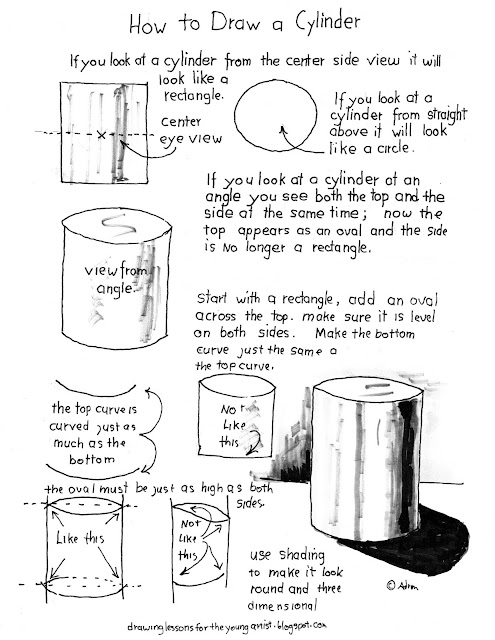 How to Draw a Cylinder
If you look at a cylinder from the center side view it will
look like a
rectangle.
center
eye view
If you look at a
cylinder from straight
above it will look
like a circle.
If you look at a cylinder at an
angle you see both the top and the
side at the same time; now the
top appears as an oval and the side
is no longer a rectangle.
view from
angle.
Start with a rectangle, add an oval
across the top. make sure it is level
on both sides. Make the bottom
curve just the same a
the top curve.
the top curve is
curved just as
much as the
bottom
Not
Like
this
the oval must be just as high as both
sides.
Like this
Not
Like
this
use shading
to make it look
round and three
dimensional
©
drawinglessonsfortheyoungartist.blogspot.com